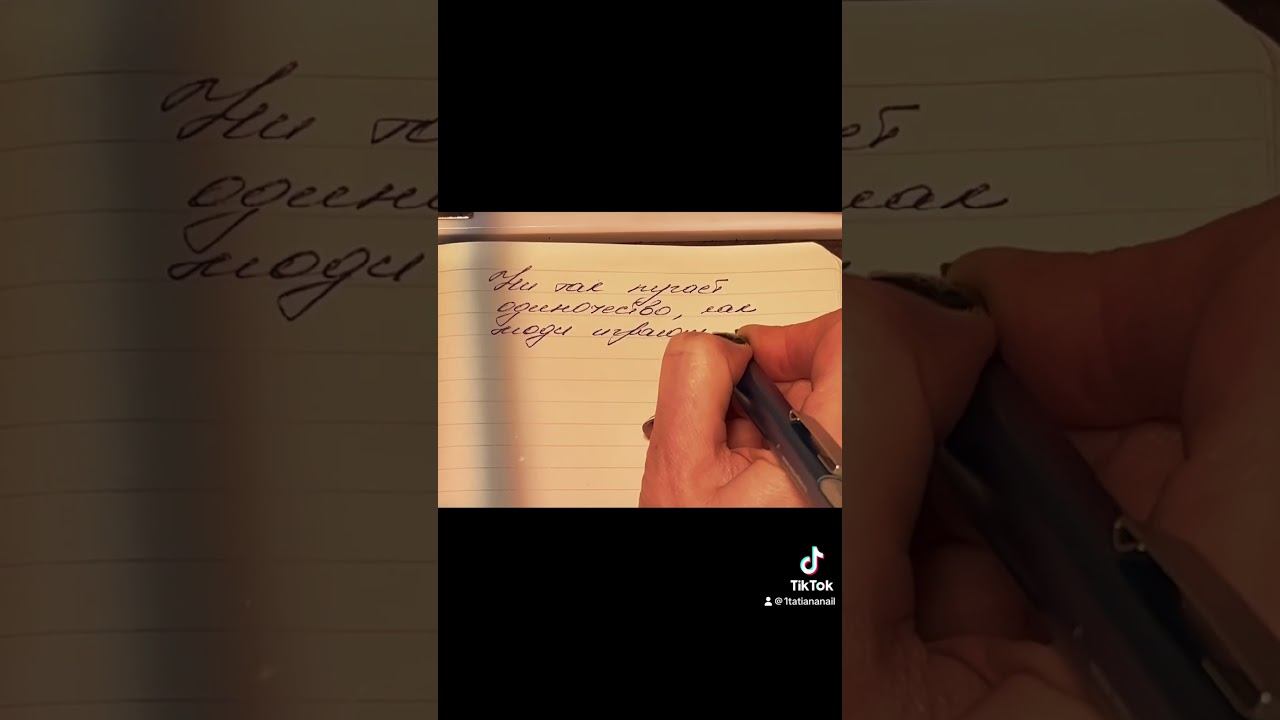 Ни так пугает
одиночество, как
люди
TikTok
@1tatiananail